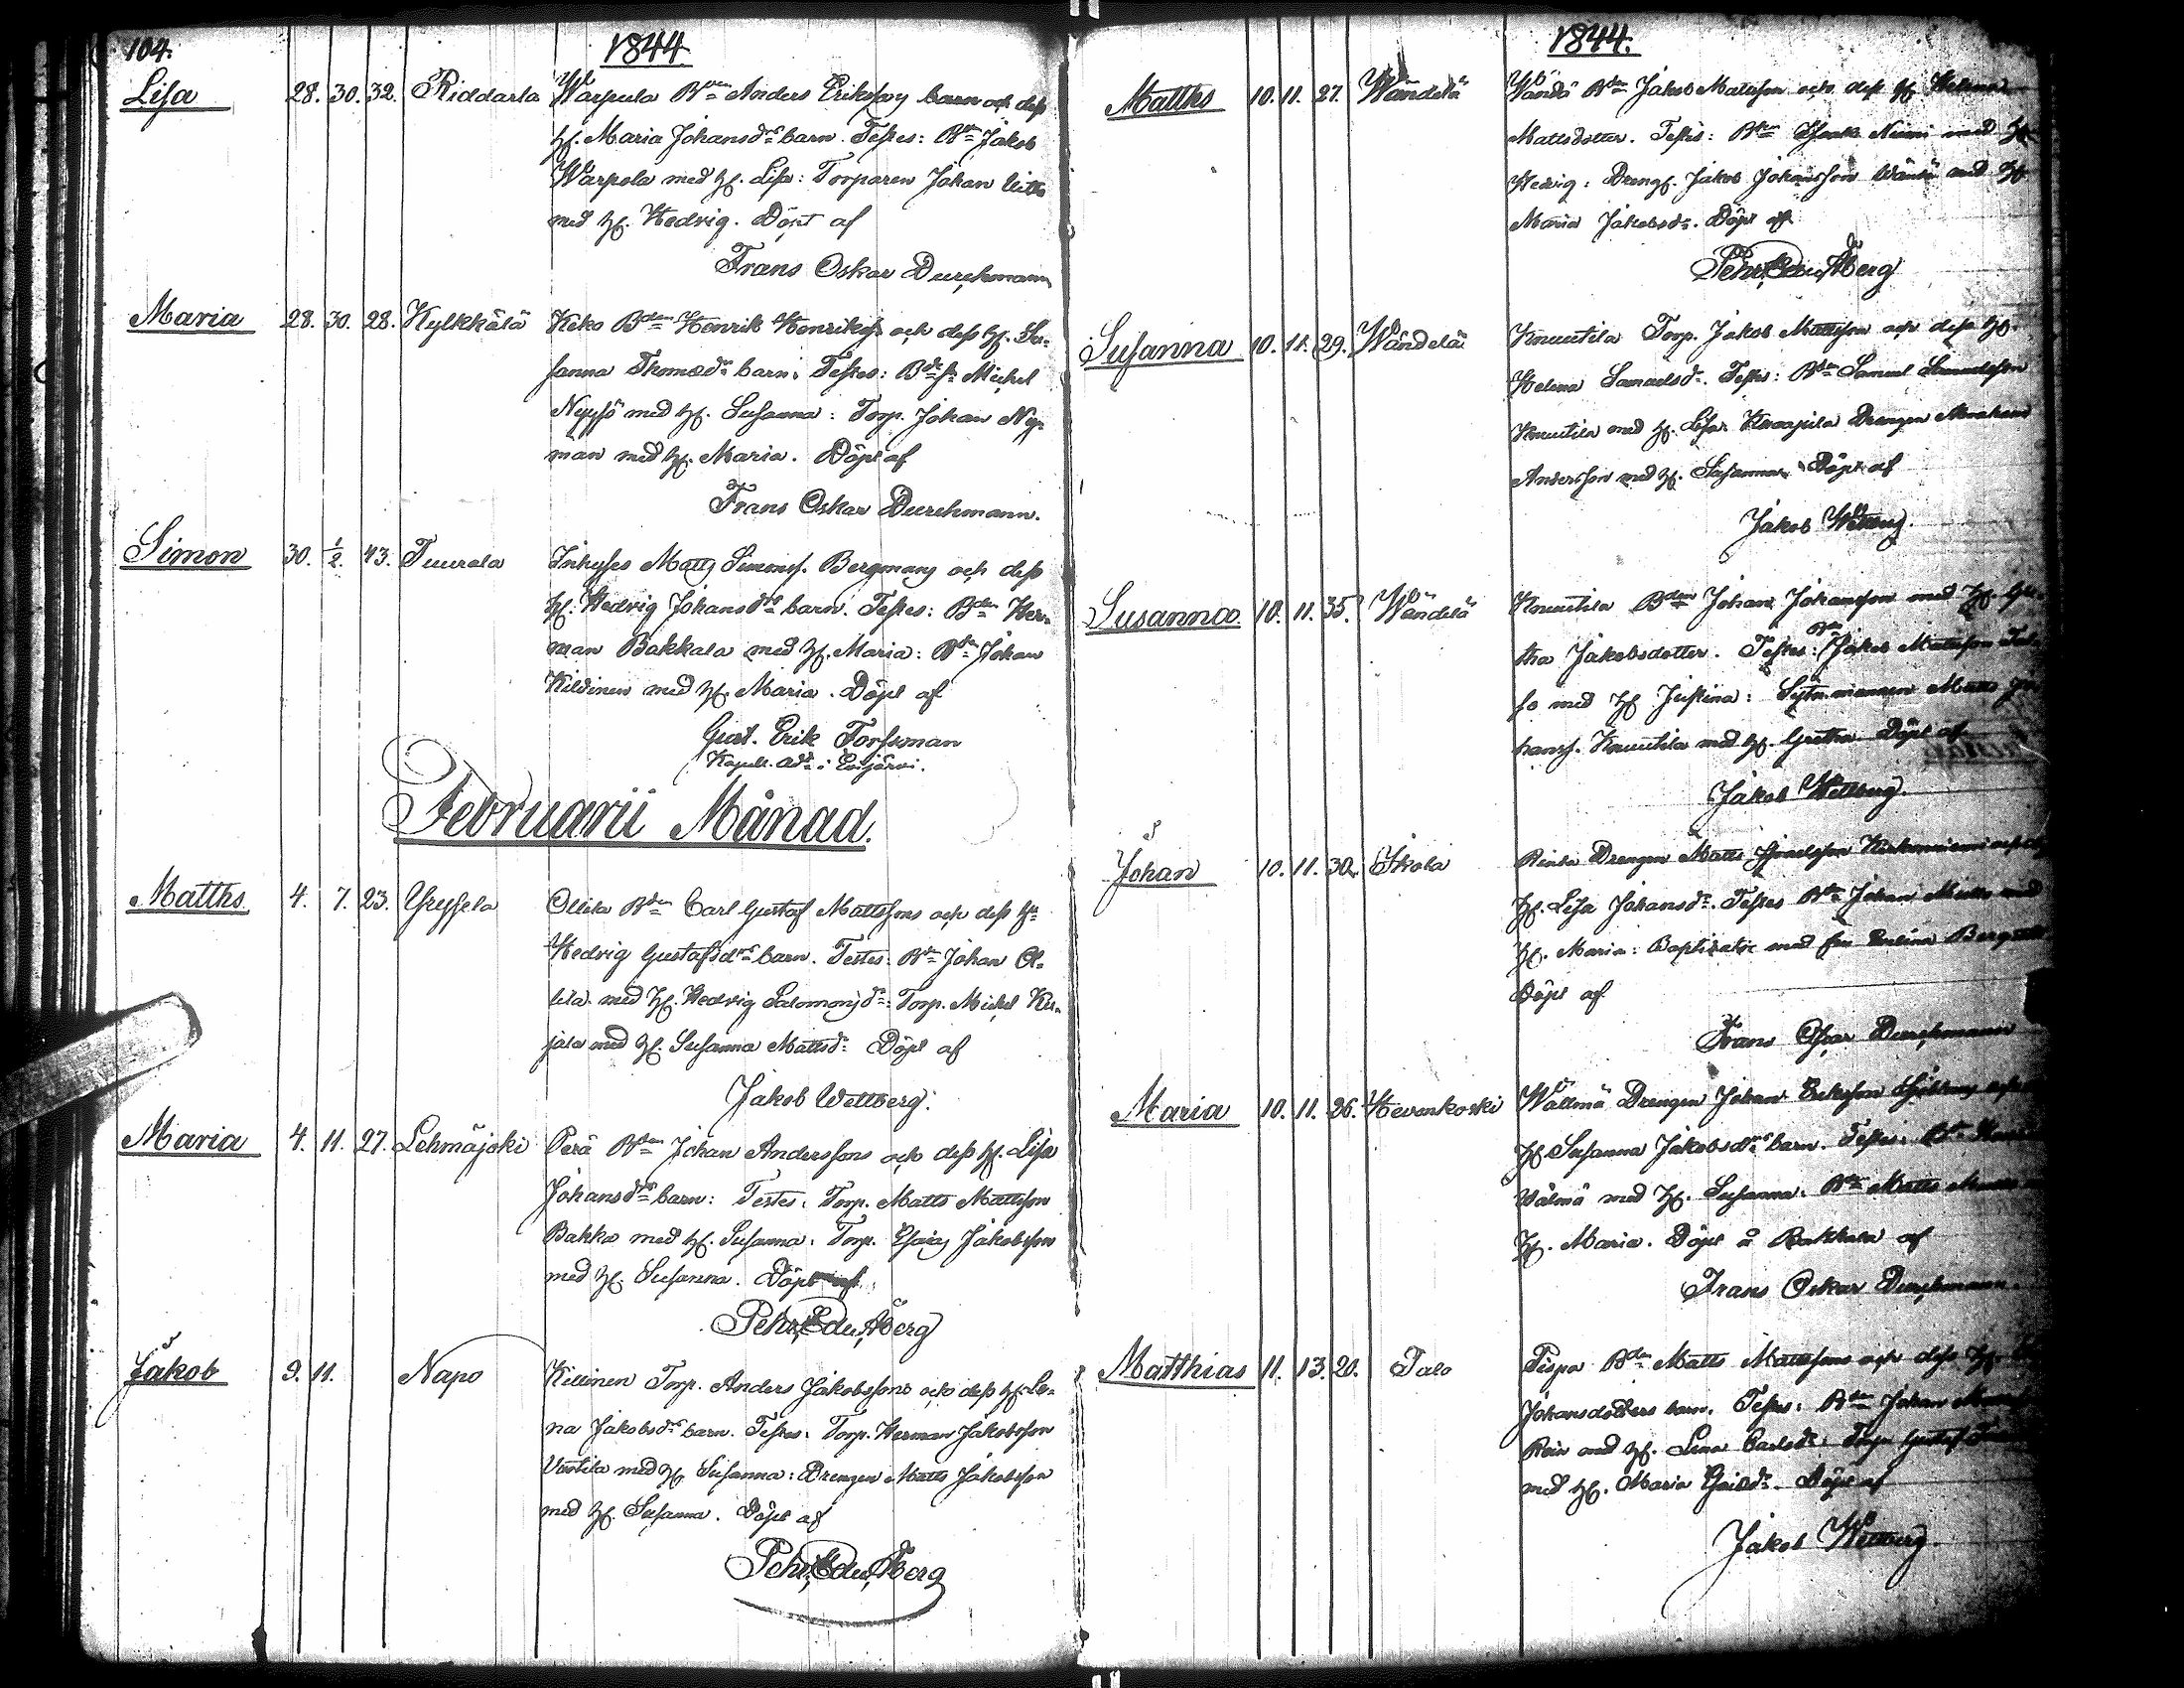 104.
1844
Lisa 28. 30. 32. Riddarla Warpula Bden Anders Erikssons barn och dess
hu. Maria Johansdrs barn. Testes: Bden Jakob
Warpola med hu. Lisa: Torparen Johan
med hu. Hedvig. Döpt af
Frans Oskar Durchman
Maria 28. 30. 28. Kylkkälä Keko Bden Henrik Henrikss. och dess hu. Su-
sanna Thomædrs barn. Testes: Bdes. Michel
Nyysö med hu. Susanna: Torp. Johan Ny-
man med hu. Maria. Döpt af
Frans Oskar Durchmann.
Simon 30. 1/2. 43. Tuurala Inhyses Matts Simonss. Bergmans och dess
hu. Hedvig Johansdrs barn. Testes: Bden Her-
man Bakkala med hu. Maria: Bden Johan
Kildinen med hu. Maria. Döpt af
Gust. Erik Forssman
Kapell. Adj. i Evijärvi.
Februarii Månad.
Matths 4. 7. 23. Yryselä Ollila Bden Carl Gustaf Mattssons och dess hu
Hedvig Gustafsdrs barn. Testes: Bden Johan Ol-
lila med hu. Hedvig Salomonsdr: Torp. Michel Ku-
jala med hu. Susanna Mattsdr Döpt af
Jakob Wettberg.
Maria 4. 11. 27. Lehmäjoki Perä Bden Johan Anderssons och dess hu. Lisa
Johansdrs barn: Testes: Torp. Matts Mattsson
Bakko med hu. Susanna. Torp. Esaias Jakobsson
med hu. Susanna. Döpt af
Pehr Edu. Åberg
Jakob 9. 11. Napo Killinen Torp. Anders Jakobssons och dess hu. Le-
na Jakobsdrs barn. Testes: Torp. Herman Jakobsson
Uutila med hu Susanna: Drengen Matts Jakobsson
med hu. Susanna. Döpt af
Pehr Edu. Åberg
1844.
Matths 10. 11. 27. Wändelä Wändä Bden Jakob Mattsson och dess hu Helena
Mattsdotter. Testes: Bden Isaak Niemi med hu
Hedvig: Drengs. Jakob Johansson Wändä med hu
Maria Jakobsdr. Döpt af
Pehr Edu. Åberg
Susanna 10. 11. 29. Wändelä Knuutila Torp. Jakob Mattsson och dess hu.
Helena Samuelsdr. Testes: Bden Samuel Samuelsson
Knuutila med hu. Lisa. Drengen Abraham
Andersson med hu. Susanna. Döpt af
Jakob Wettberg.
Susanna 10. 11. 35. Wändelä Knuutila Bden Johan Johansson med hu. Gre-
tha Jakobsdotter. Testes: Bden Jakob Mattsson
so med hu Justina: Sytn.mannen Matts Jo-
hanss. Knuutila med hu. Gretha Döpt af
Jakob Wettberg.
Johan 10. 11. 30. Ikola Rinta Drengen Matts och
hu. Lisa Johansdr. Testes Bden Johan med
hu. Maria: Baptizator med fru
Döpt af
Frans Oskar Durchmann
Maria 10. 11. 26. Hevonkoski Wällmä Drengen Johan Eriksson
hu. Susanna Jakobsdrs barn. Testes: Bden
Wälmä med hu. Susanna: Bden Matts
hu. Maria. Döpt å Bakkala af
Frans Oskar Durchmann.
Matthias 11. 13. 20. Talo Bden Matts Mattssons och dess hu
Johansdotters barn. Testes: Bden Johan
med hu. Lena Carlsdr: Torp. Gustaf
med hu. Maria Döpt af
Jakob Wettberg.